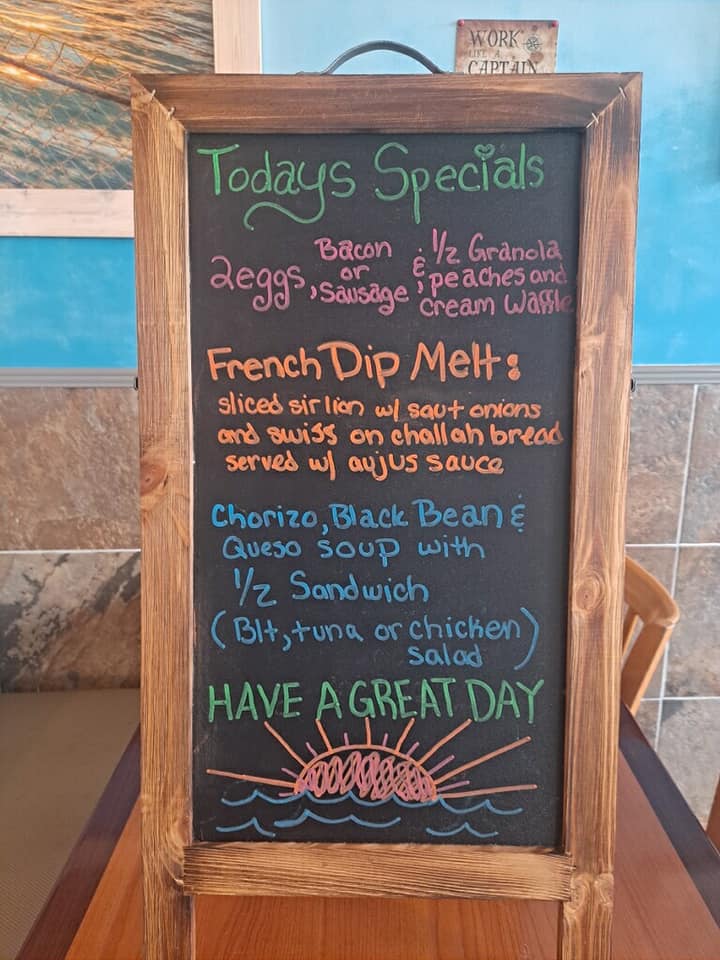 WORK
LIKE A
CAPTAIN
Todays Specials
2eggs, Bacon or Sausage & 1/2 Granola, peaches and cream Waffle
French Dip Melt:
sliced sirlion w/ saut onions
and swiss on challah bread
served w/ aujus sauce
Chorizo, Black Bean &
Queso soup with
1/2 Sandwich
(Blt, tuna or chicken
salad)
HAVE A GREAT DAY